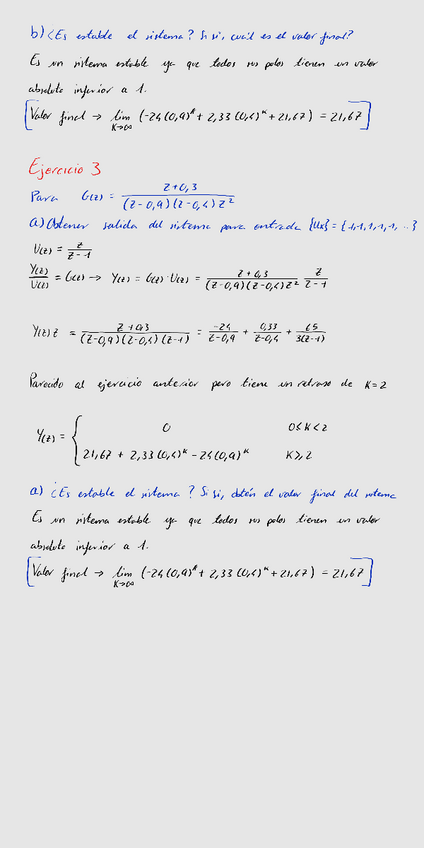 b) ¿Es estable el sistema? Si si, cuál es el valor final?
Es un sistema estable ya que todos sus polos tienen un valor
absoluto inferior a 1.
Valor final → lim K→∞ (-24(0,9)^k + 2,33(0,4)^k + 21,67) = 21,67
Ejercicio 3
Para G(z) = (z+0,3)/((z-0,9)(z-0,4)z²)
a) Obtener salida del sistema para entrada {Uk} = {1,1,1,1,1,...}
U(z) = z/(z-1)
Y(z)/U(z) = G(z) → Y(z) = G(z)·U(z) = (z+0,3)/((z-0,9)(z-0,4)z²) z/(z-1)
Y(z) z = (z+0,3)/((z-0,9)(z-0,4)(z-1)) = -24/(z-0,9) + 0,33/(z-0,4) + 65/3(z-1)
Parecido al ejercicio anterior pero tiene un retraso de K=2
Y(z) = { 0 0≤K<2
21,67 + 2,33(0,4)^k - 24(0,9)^k K≥2
a) ¿Es estable el sistema? Si si, obtén el valor final del sistema
Es un sistema estable ya que todos sus polos tienen un valor
absoluto inferior a 1.
Valor final → lim K→∞ (-24(0,9)^k + 2,33(0,4)^k + 21,67) = 21,67